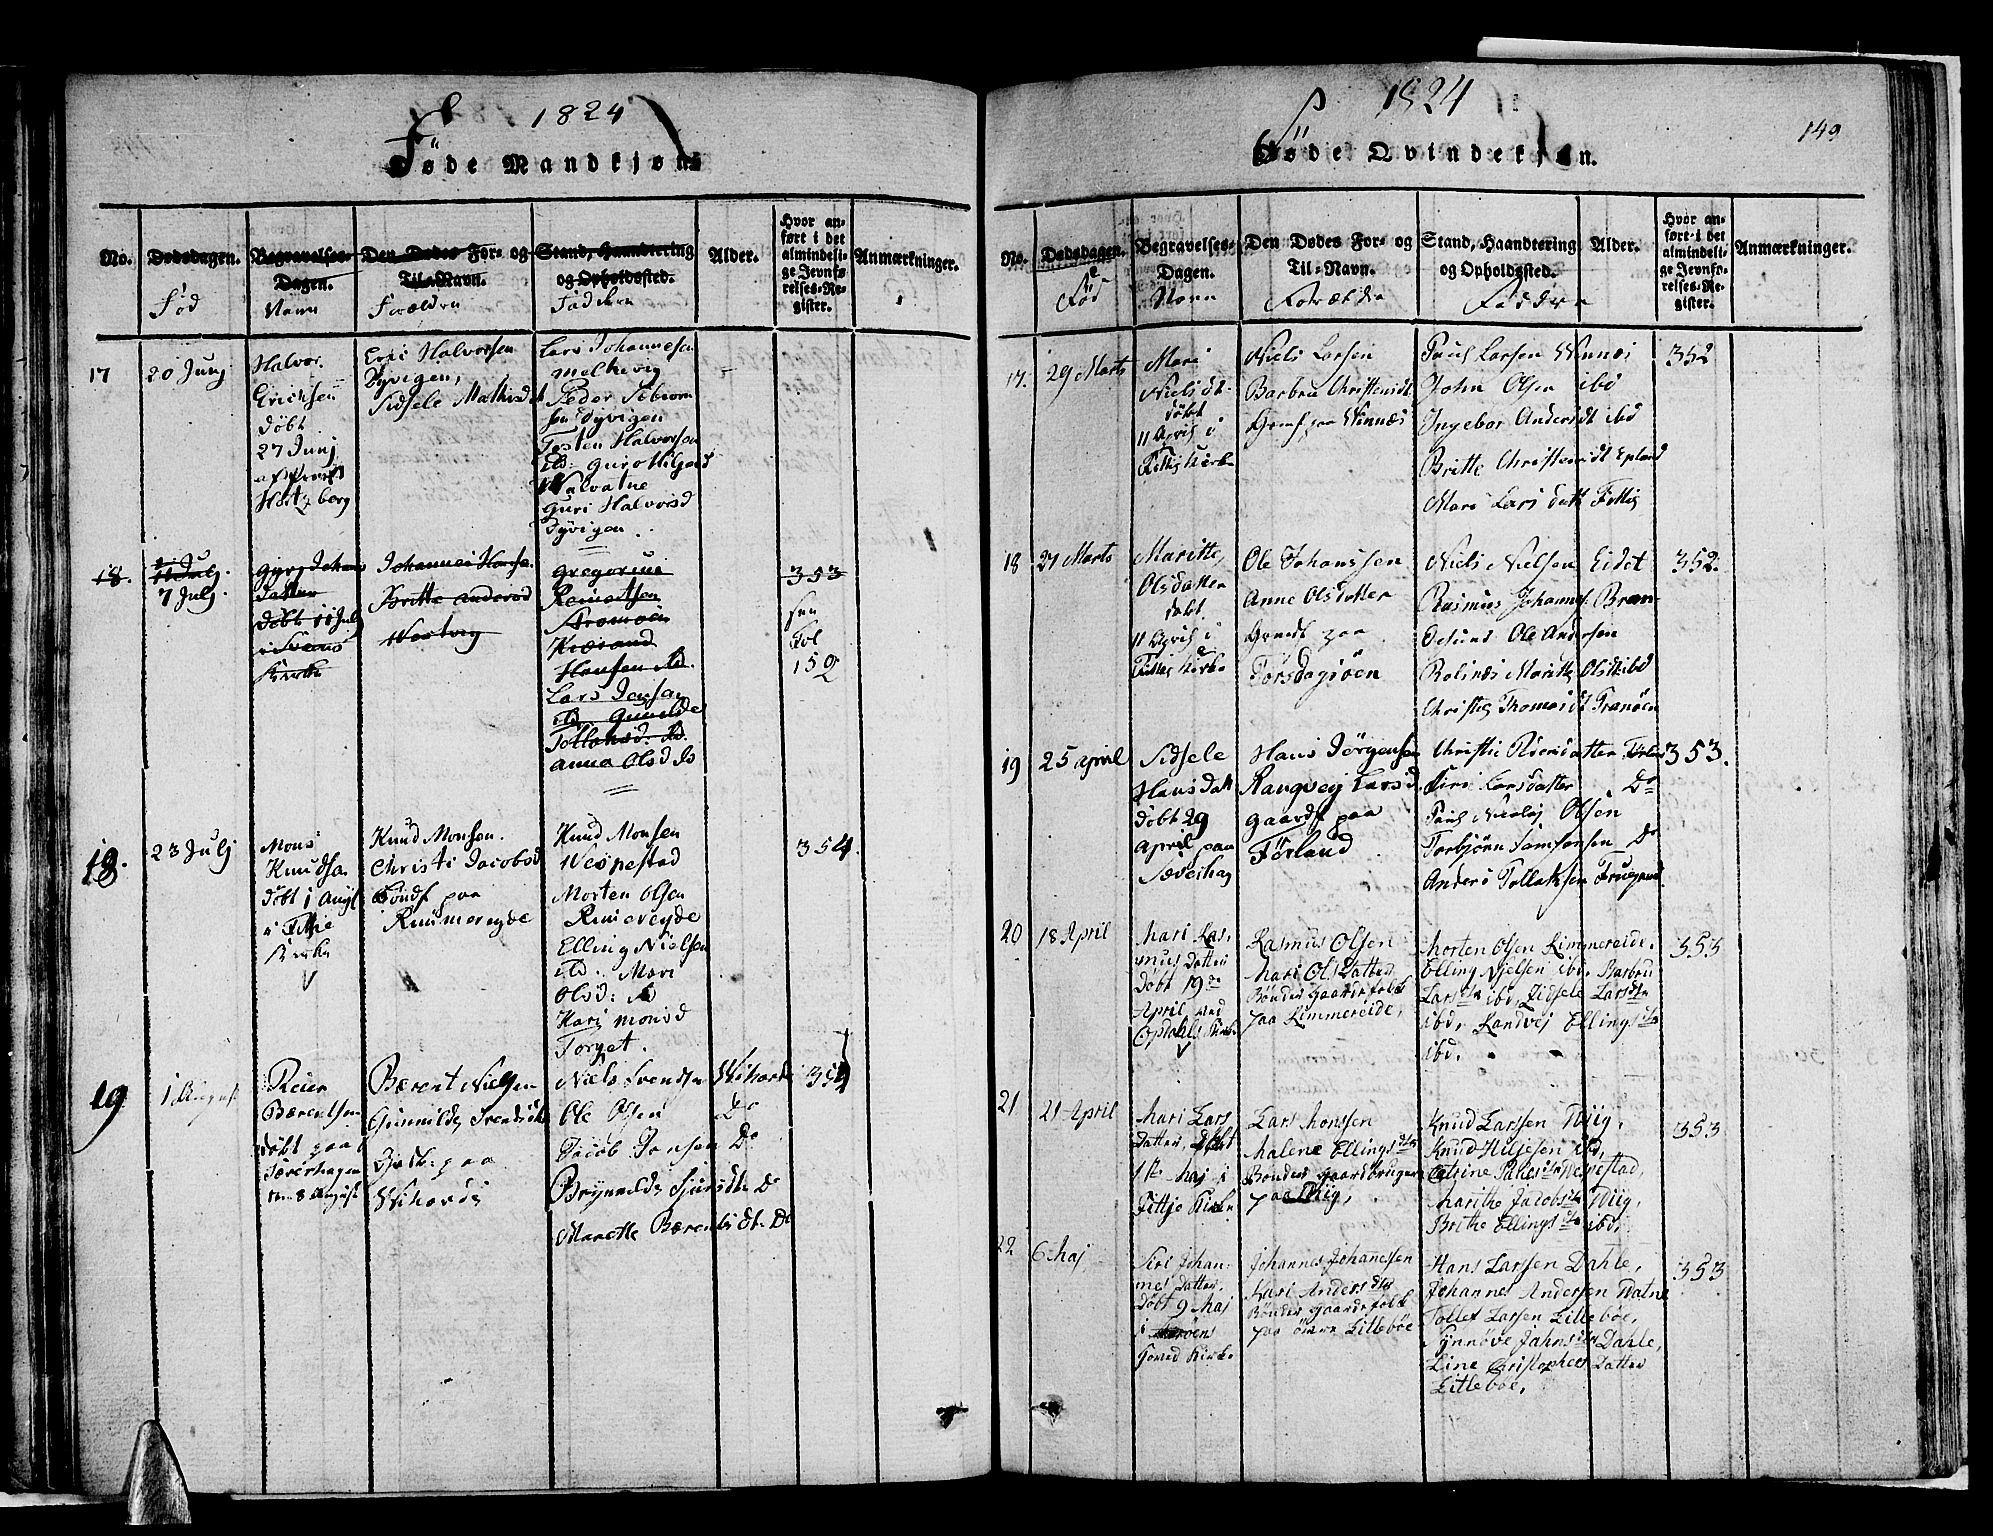 1824
Føde Mandkjøn
No.
Dødsdagen.
Fød
Begravelses-
Dagen.
Navn
Den Dødes For- og
Til-Navn.
Forældre
Stand, Haandtering
og Opholdssted.
Faddere
Alder.
Hvor an-
ført i det
almindeli-
ge Jevnfø-
relses-Re-
gister.
Anmærkninger.
17
20 Junj
Halvor
Erichsen
døbt
27 Junj
af Provst
Hertzberg
Eric Halvorsen
Dyvigen,
Sidsele Mathisd
Lars Johannesen
melkevig
Peder
Dyvigen
Tosten Halvorsen
Guri Halvorsd
Dyvigen
18.
11 Julj.
7 Julj.
Datter
døbt 11 Julj
Kirke
Johannes
Britte Andersd
Westvig
Gregorius
Reinertsen
Hansen
Lars Jensen
Gunilde
Anna Olsd
353
see
Fol
152
18.
23 Julj
Mons
Knudsen
døbt 1 Augt
i Fittie
Kirke
Knud Monsen.
Christi Jacobsd
Bøndf paa
Rimmereyde
Knud Monsen
Wespestad
Morten Olsen
Rimereyde
Elling Nielsen
ibd. Mari
Olsd:
Kari monsd
Torget.
354.
19
1 August
Reier
Bærentsen
døbt paa
Sæverhagen
den 8 August
Bærent Nielsen
Gunnilde Svendsdt
paa
Wihovde
Niels Svendsen Wihovde
Ole Olsen Do
Jacob Jansen Do
Brynnilde Sjursdt. Do
Marette Bærentsdt. Do
354
1824
149
Føde Qvindekjøn.
No.
Dødsdagen.
Fød
Begravelses-
Dagen.
Navn
Den Dødes For- og
Til-Navn.
Forældre
Stand, Haandtering
og Opholdssted.
Faddere
Alder.
Hvor an-
ført i det
almindeli-
ge Jevnfø-
relses-Re-
gister.
Anmærkninger.
17.
29 Marts
Mari
Nielsdt.
døbt
11 April i
Fittie Kirke
Niels Larsen
Barbru Christensdt
paa Winnæs
Poul Larsen Winnæs
John Olsen ibd
Ingebor Andersdt ibd
Britte Christensdt Epland
Mari Larsdatt Fittie
352
18
27 Marts
Maritte
Olsdatter
døbt
11 April i
Fittie Kirke
Ole Johanssen
Anne Olsdatter
paa
Torsdagsøen
Niels Nielsen Eidet
Rasmus Johannes Bran-
Ole Andersen
Rolsnæs Maritte Olsdt ibd
Christie Thomasdt Tranøen
352.
19
25 april
Sidsele
Hansdatt
døbt 29
april paa
Sæverhag
Hans Jørgensen
Rangvej Larsd
gaardf paa
Førland
Christie datter
Siri Larsdatter Do
Poul Nicolaj Olsen
Torbjørn Samsonsen Do
Anders Tollaksen
353.
20
18 April
Mari Ras-
mus Datter
Døbt 19de
April, ved
Opdahls Kirke
Rasmus Olsen
Mari Olsdatter
Bønder Gaardsfolk
paa Rimmereide,
Morten Olsen Rimmereide,
Elling Nielsen ibd, Barbru
Larsdtr ibd, Zidsele Larsdtr
ibd, Randvej Ellingsdtr
ibd.
353
21
21 April
Mari Lars
Datter, Døbt
1ste Maj i
Fittje Kirke
Lars Monssen
Malene Ellingsdtr
Bønder Gaardbrugere
paa Wiig,
Knud Larssen Wiig,
Knud Hiljesen ibd,
Catrine Wespestad,
Marithe Jacobsdtr Wiig,
Brithe Ellingsdtr ibd,
353
22
6 Maj
Siri Johan-
nes Datter,
Døbt 9 Maj
i
Kirke
Johannes Johanessen
Kari Andersdtr
Bønder Gaardsfolk
paa øvre Littebøe
Hans Larssen Dahle,
Johannes Andersen Watne
Tollef Larssen Littebøe,
Synnøve Jahnsdtr Dahle,
Line Christophers Datter
Littebøe,
353